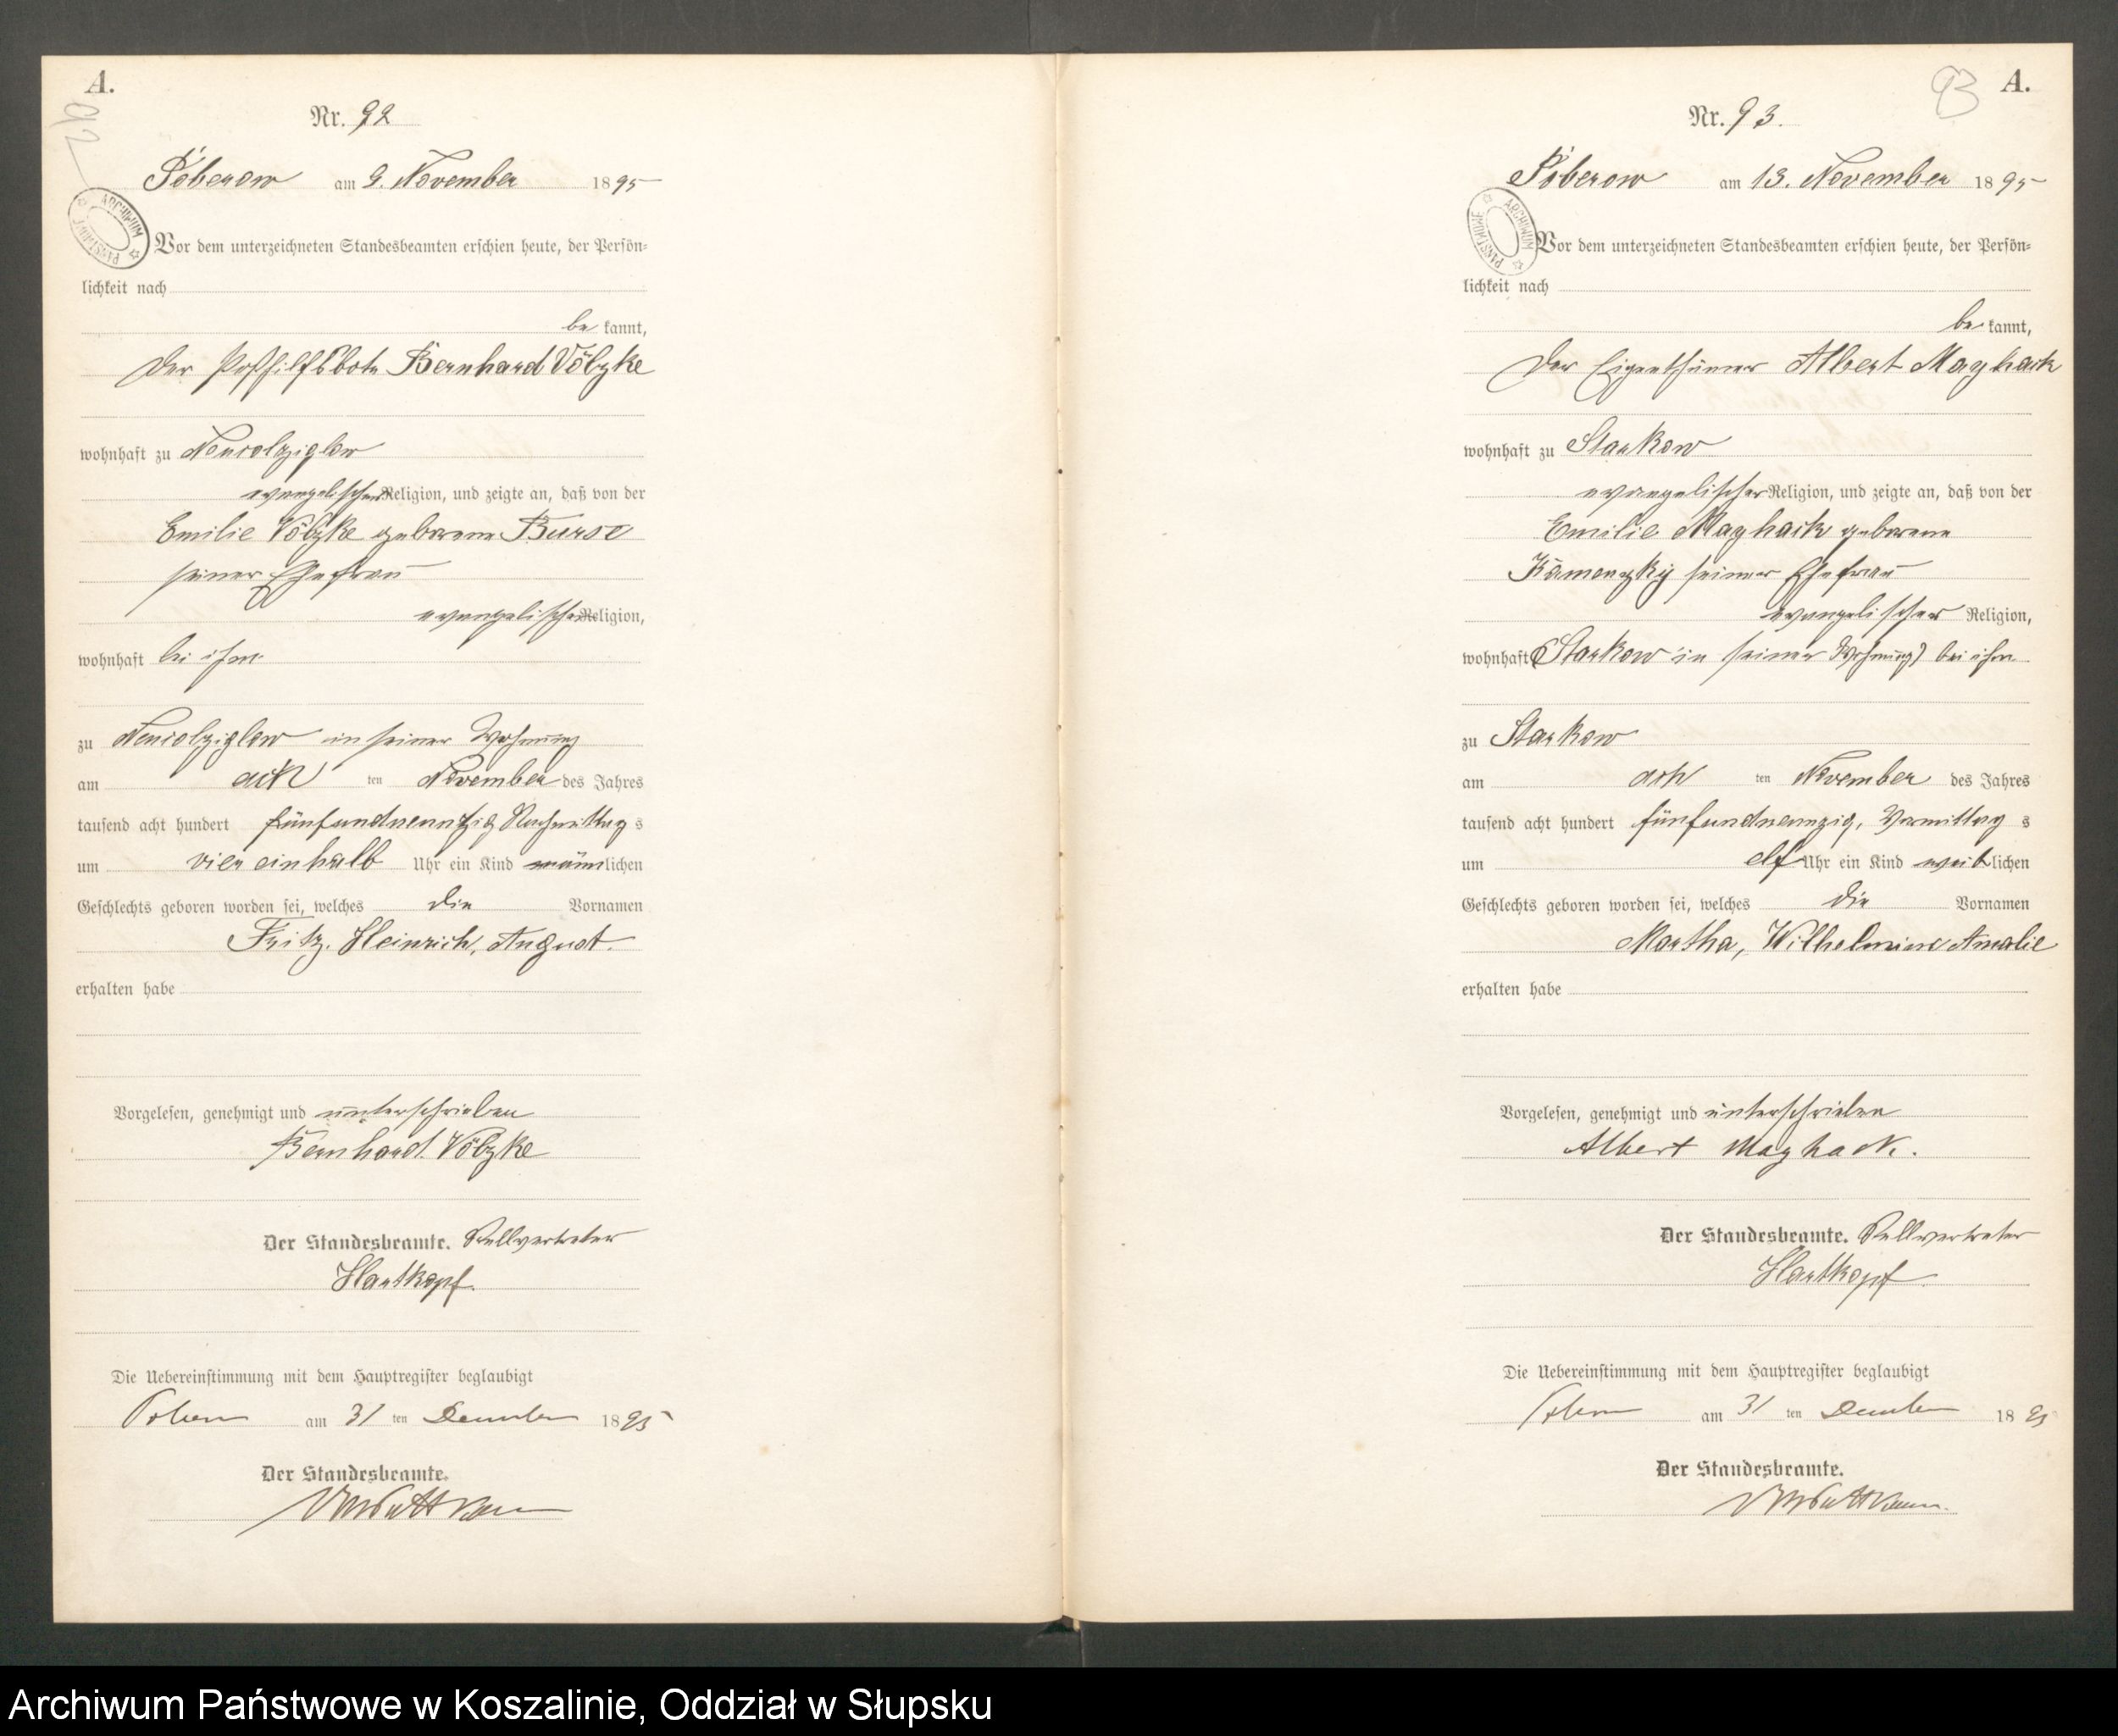 A.
92
Nr. 92
Poberow am 9. November 1895
ARCHIWUM PAŃSTWOWE
Vor dem unterzeichneten Standesbeamten erschien heute, der Persön-
lichkeit nach
be kannt,
Der Posthilfsbote Bernhard Völzke
wohnhaft zu Neucolziglow
evangelischer Religion, und zeigte an, daß von der
Emilie Völzke geborene
seiner Ehefrau
evangelischer Religion,
wohnhaft bei ihm
zu Neucolziglow in seiner Wohnung
am acht ten November des Jahres
tausend acht hundert fünfundneunzig Nachmittag s
um vier einhalb Uhr ein Kind männlichen
Geschlechts geboren worden sei, welches die Vornamen
Fritz, Heinrich, August.
erhalten habe
Vorgelesen, genehmigt und unterschrieben
Bernhard Völzke
Der Standesbeamte. Stellvertreter
Hartkopf.
Die Uebereinstimmung mit dem Hauptregister beglaubigt
am 31 ten December 1895
Der Standesbeamte.
93 A.
Nr. 93.
Poberow am 13. November 1895
ARCHIWUM PAŃSTWOWE
Vor dem unterzeichneten Standesbeamten erschien heute, der Persön-
lichkeit nach
be kannt,
Der Eigenthümer Albert Mayhack
wohnhaft zu Starkow
evangelischer Religion, und zeigte an, daß von der
Emilie Mayhack geborene
Kamenzky seiner Ehefrau
evangelischer Religion,
wohnhaft (Starkow in seiner Wohnung) bei ihm
zu Starkow
am acht ten November des Jahres
tausend acht hundert fünfundneunzig, Vormittag s
um elf Uhr ein Kind weiblichen
Geschlechts geboren worden sei, welches die Vornamen
Martha, Wilhelmine Amalie
erhalten habe
Vorgelesen, genehmigt und unterschrieben
Albert Mayhack.
Der Standesbeamte. Stellvertreter
Hartkopf
Die Uebereinstimmung mit dem Hauptregister beglaubigt
am 31 ten December 1895
Der Standesbeamte.
Archiwum Państwowe w Koszalinie, Oddział w Słupsku